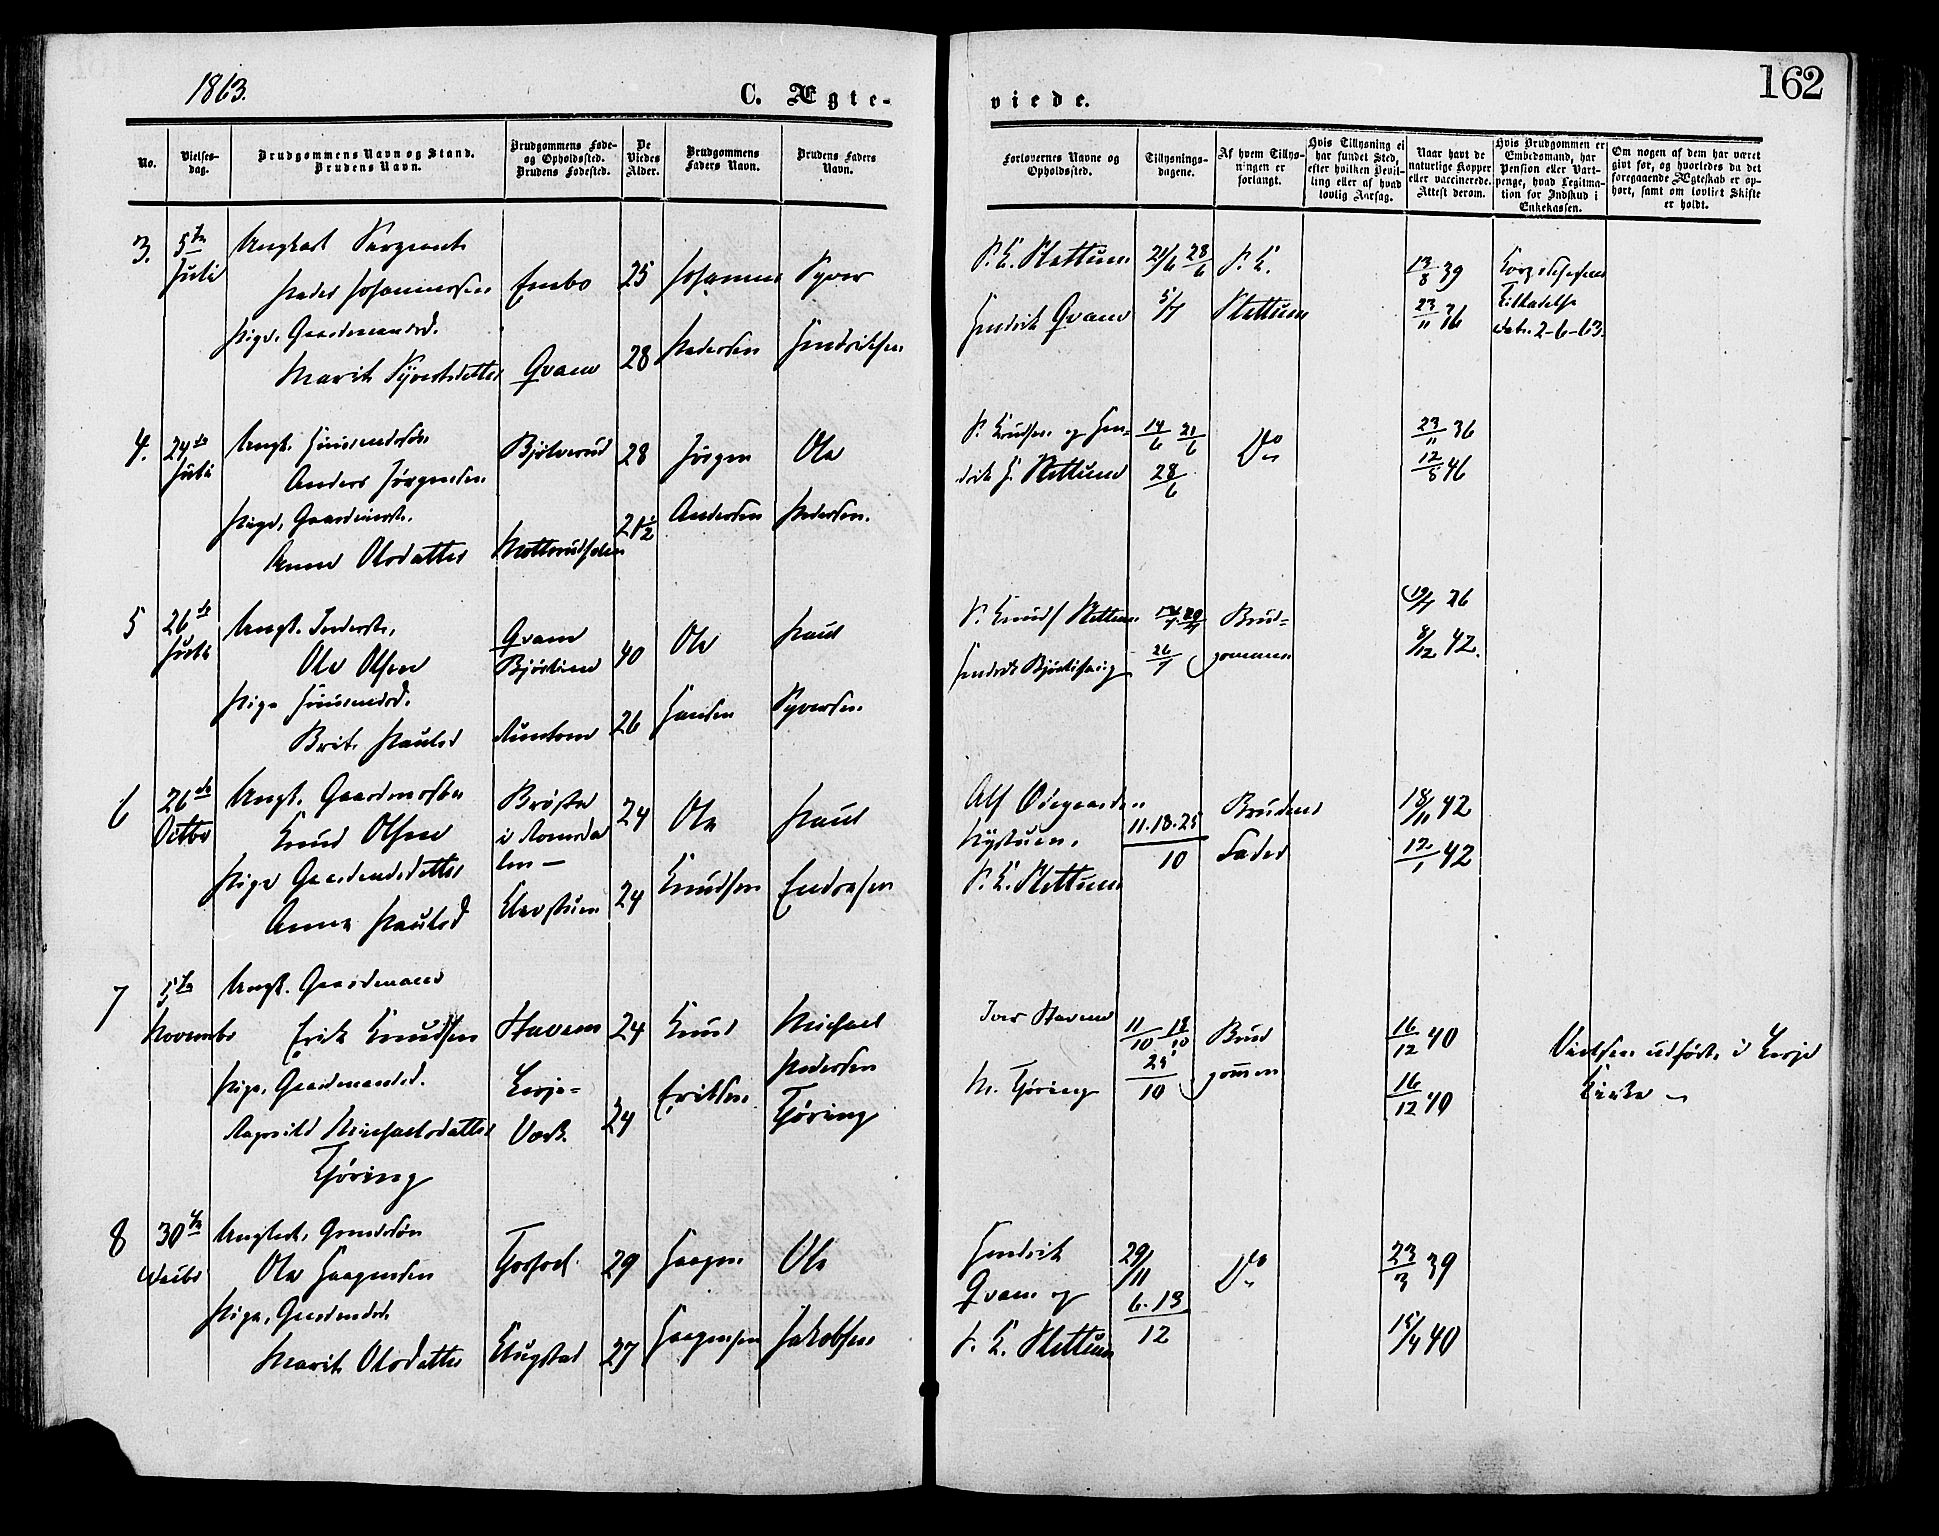 162
1863.
C. Ægte-
viede.
No.
Vielses-
dag.
Brudgommens Navn og Stand.
Brudens Navn.
Brudgommens Føde-
og Opholdssted.
Brudens Fødested.
De
Viedes
Alder.
Brudgommens
Faders Navn.
Brudens Faders
Navn.
Forlovernes Navne og
Opholdssted.
Tillysnings-
dagene.
Af hvem Tillys-
ningen er
forlangt.
Hvis Tillysning ei
har fundet Sted,
efter hvilken Bevil-
ling eller af hvad
lovlig Aarsag.
Naar havt de
naturlige Kopper
eller vaccinerede.
Attest derom.
Hvis Brudgommen er
Embedsmand, har
Pension eller Vart-
penge, hvad Legitima-
tion for Indskud i
Enkekassen.
Om nogen af dem har været
givt før, og hvorledes da det
foregaaende Ægteskab er op-
hørt, samt om lovligt Skifte
er holdt.
3.
5te
Juli
Ungkarl Sergeant
Peder Johannessen
Pige, Gaardmandsd.
Marit Syversdatter
Embo
Qvam
25
28
Johannes
Pedersen
Syver
Hendriksen
P. K. Slettum
Hendrik Qvam
21/6 28/6
5/7
P. K.
Slettum
13/8 39
23/11 36
Tilladelse
dat. 2-6-63.
4.
24de
Juli
Ungk. Huusmandssøn
Anders Jørgensen
Pige, Gaardmandsd.
Anne Olsdatter
Bjølverud
28
21½
Jørgen
Andersen
Ole
Pedersen.
P. Knudsen og Hen-
drik H. Slettum
14/6 21/6
28/6
Do
23/11 36
12/5 46
5
26de
Juli
Ole Olsen
Pige Huusmandsd.
Brit Paulsd
Qvam
40
26
Ole
Hansen
Paul
Syversen.
P. Knuds Slettum
26/7
Brud-
gommen
19/7 26
8/12 42.
6
26de
Octbr
Ungk. Gaardmandssøn
Knud Olsen
Pige Gaardmandsdatter
Anne Paulsd
Brøste
i Romsda
len—
24
24
Ole
Knudsen
Paul
Endresen
Alf Ødegaarden
Nystuen.
P. K. Slettum
11. 18. 25
10
Brudens
Fader
18/11 42
12/1 42
7
5te
Novembr
Ungk. Gaardmand
Erik Knudsen
Pige, Gaardmandsd.
Ragnild Michaelsdatter
Tjøring
Staven
Lesje-
Værk.
24
24
Knud
Eriksen.
Michael
Pedersen
Tjøring
Iver Staven
M. Tjøring
11/10 18/10
25/10
Brud
gommen
16/12 40
16/12 40
Vielsen udført i Lesje
Kirke
8
30te
Decbr
Ungkarl, Gaardmandssøn
Ole Haagensen
Pige, Gaardmandsd.
Marit Olsdatter
Klugstad
29
27
Haagen
Haagensen
Ole
Jakobsen
Hendrik
Qvam og
P. K. Slettum
29/11
6. 13
12
Do
23/3 39
15/4 40